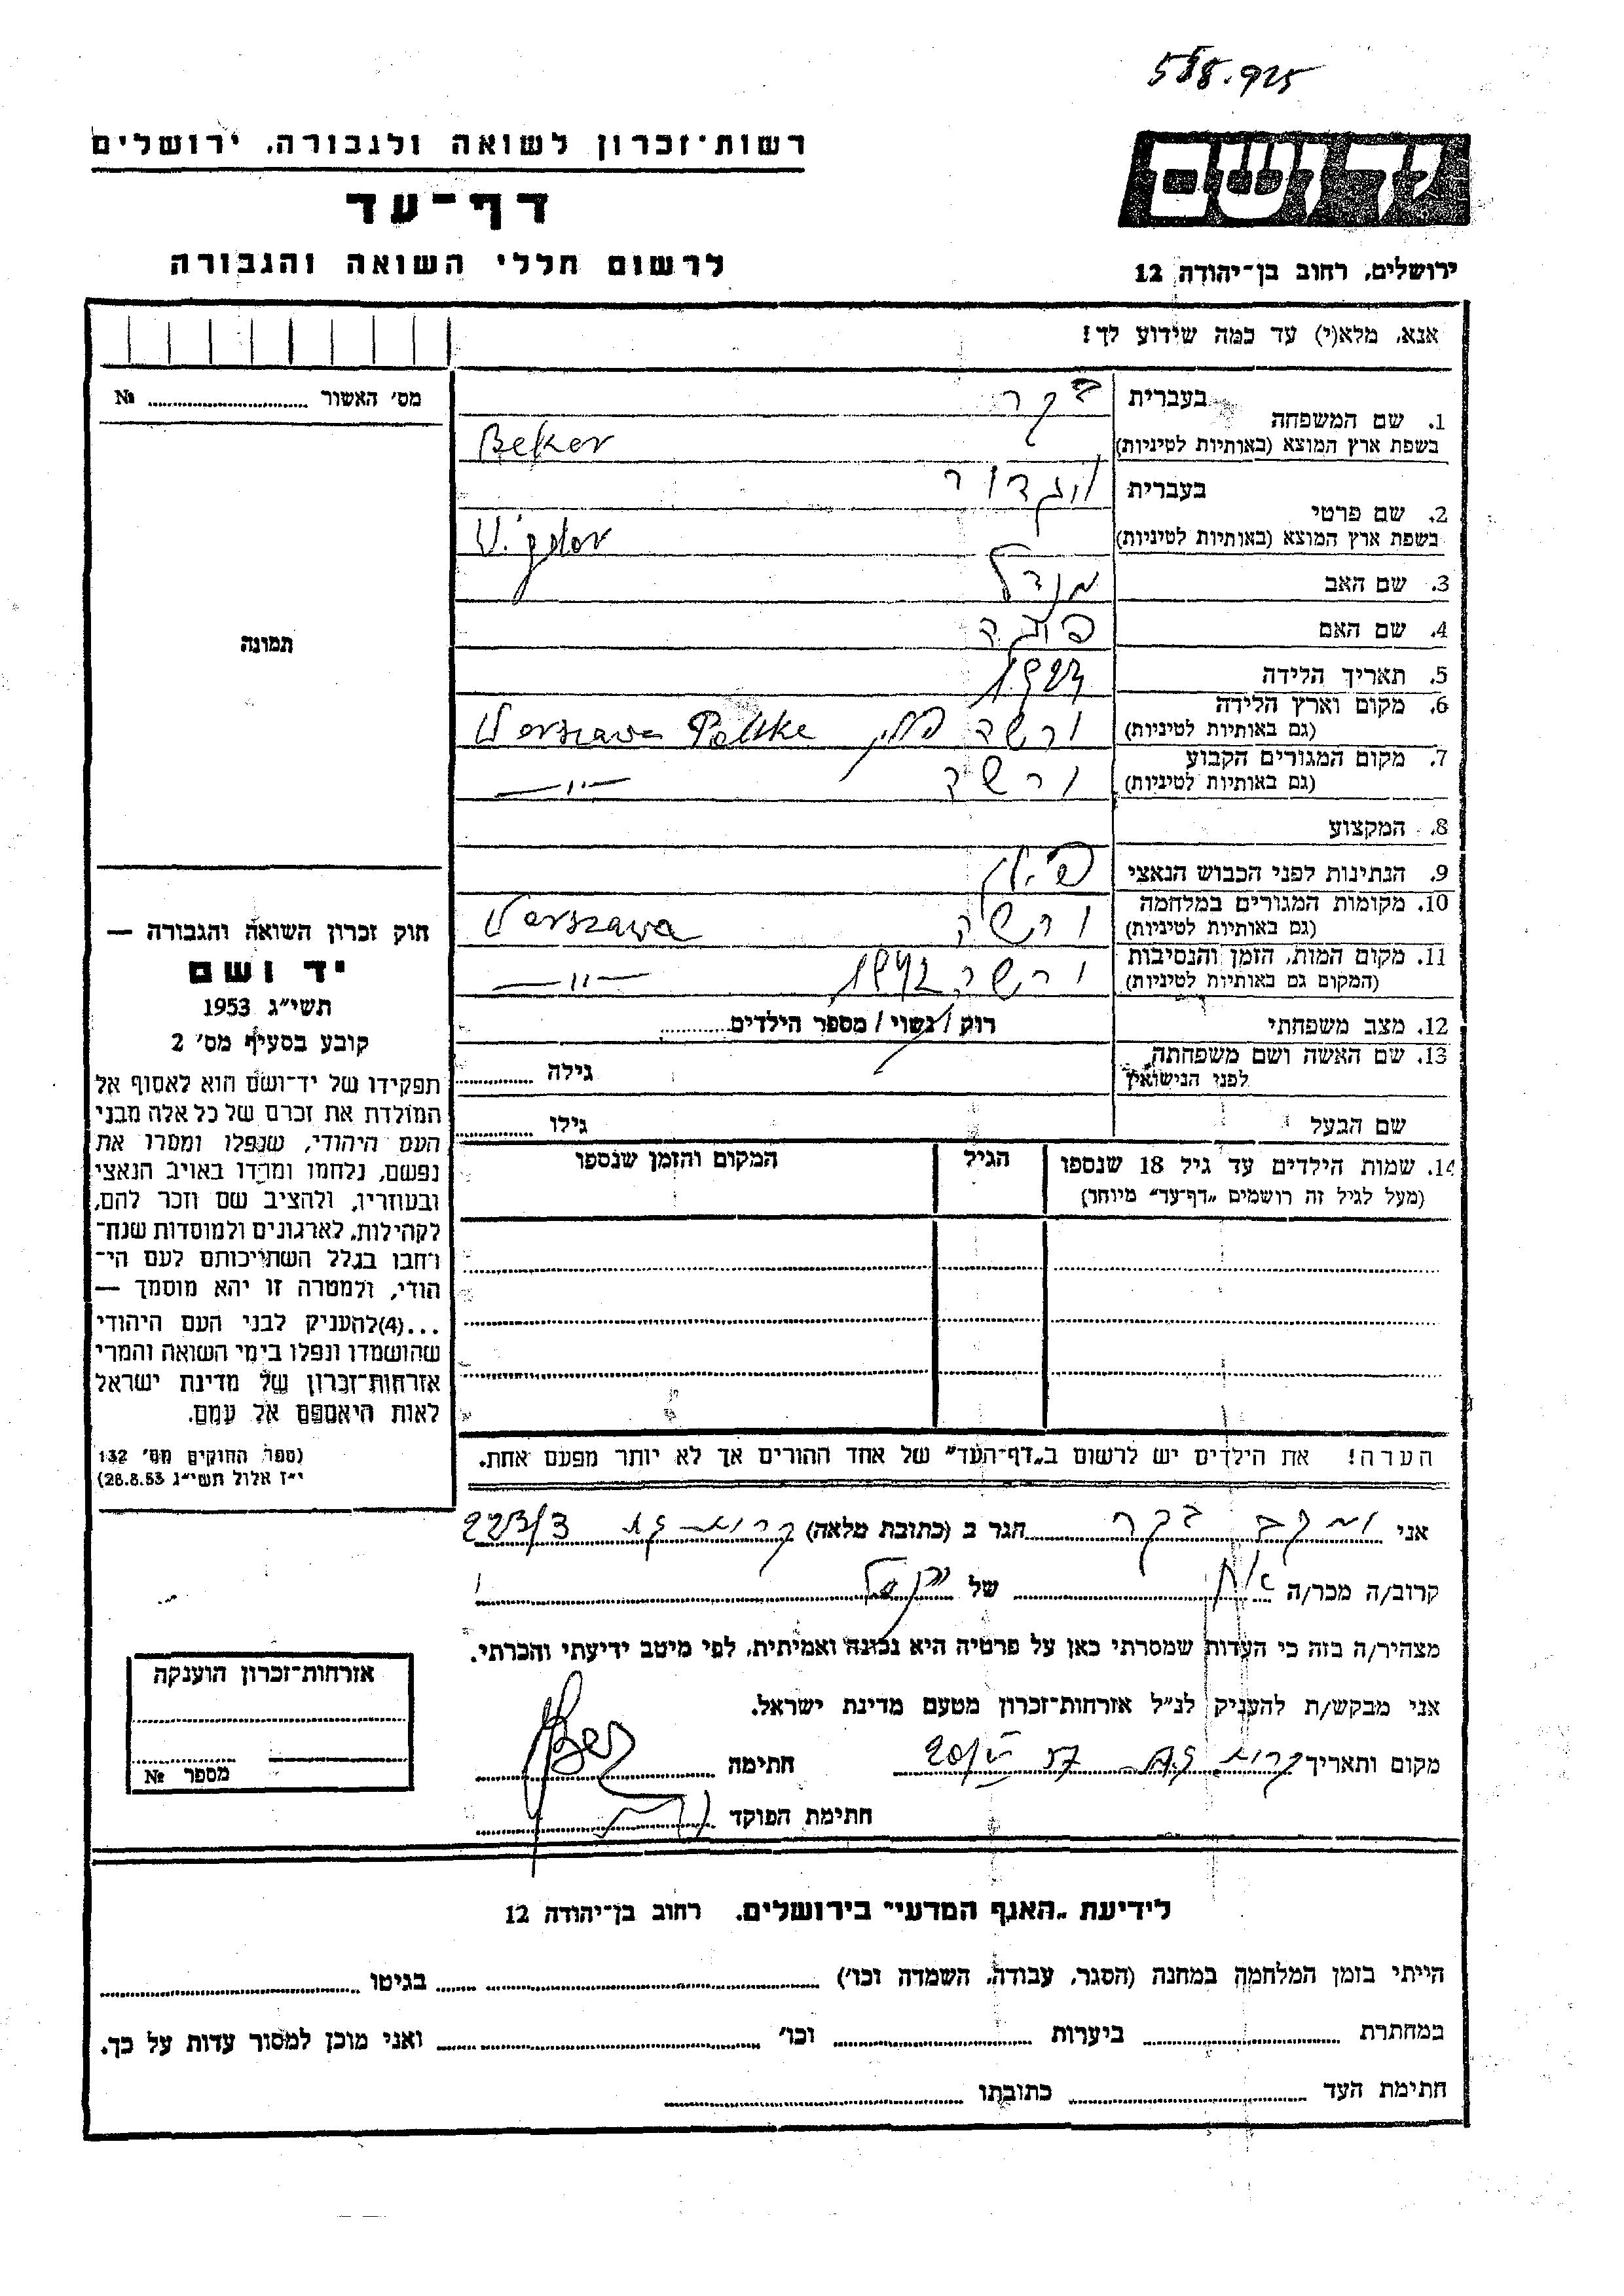 558.925
רשות־זכרון לשואה ולגבורה, ירושלים
דף־עד
לרשום חללי השואה והגבורה
יד ושם
ירושלים, רחוב בן־יהודה 12
אנא, מלא(י) עד כמה שידוע לך!
מס' האשור № 
1. שם המשפחה
בעברית בקר
בשפת ארץ המוצא (באותיות לטיניות) Beker
2. שם פרטי
בעברית ויגדור
בשפת ארץ המוצא (באותיות לטיניות) Vigdor
3. שם האב מנדל
4. שם האם
5. תאריך הלידה
6. מקום וארץ הלידה ורשה פולין Warszawa Polska
(גם באותיות לטיניות)
7. מקום המגורים הקבוע ורשה —״—
(גם באותיות לטיניות)
8. המקצוע
9. הנתינות לפני הכבוש הנאצי פולין
10. מקומות המגורים במלחמה ורשה Warszawa
(גם באותיות לטיניות)
11. מקום המות, הזמן והנסיבות ורשה 1942 —״—
(המקום גם באותיות לטיניות)
12. מצב משפחתי רוק / נשוי / מספר הילדים
13. שם האשה ושם משפחתה
לפני הנישואין גילה
שם הבעל גילו
14. שמות הילדים עד גיל 18 שנספו הגיל המקום והזמן שנספו
(מעל לגיל זה רושמים „דף־עד" מיוחד)
הערה! את הילדים יש לרשום ב„דף־העד" של אחד ההורים אך לא יותר מפעם אחת.
תמונה
חוק זכרון השואה והגבורה —
יד ושם
תשי״ג 1953
קובע בסעיף מס' 2
תפקידו של יד־ושם הוא לאסוף אל
המולדת את זכרם של כל אלה מבני
העם היהודי, שנפלו ומסרו את
נפשם, נלחמו ומרדו באויב הנאצי
ובעוזריו, ולהציב שם וזכר להם,
לקהילות, לארגונים ולמוסדות שנח־
רחבו בגלל השתייכותם לעם הי־
הודי, ולמטרה זו יהא מוסמך —
...(4)להעניק לבני העם היהודי
שהושמדו ונפלו בימי השואה והמרי
אזרחות־זכרון של מדינת ישראל
לאות היאספם אל עמם.
(ספר החוקים מס' 132
י״ז אלול תשי״ג 28.8.53)
אני יעקב בקר הגר ב (כתובת מלאה) קרית גת 223/3
קרוב/ה מכר/ה אח של
מצהיר/ה בזה כי העדות שמסרתי כאן על פרטיה היא נכונה ואמיתית, לפי מיטב ידיעתי והכרתי.
אני מבקש/ת להעניק לנ״ל אזרחות־זכרון מטעם מדינת ישראל.
מקום ותאריך קרית גת 20/ 57 חתימה
חתימת הפוקד
אזרחות־זכרון הוענקה
מספר №
לידיעת „האגף המדעי" בירושלים, רחוב בן־יהודה 12
הייתי בזמן המלחמה במחנה (הסגר, עבודה, השמדה וכו') בגיטו
במחתרת ביערות וכו' ואני מוכן למסור עדות על כך.
חתימת העד כתובתו